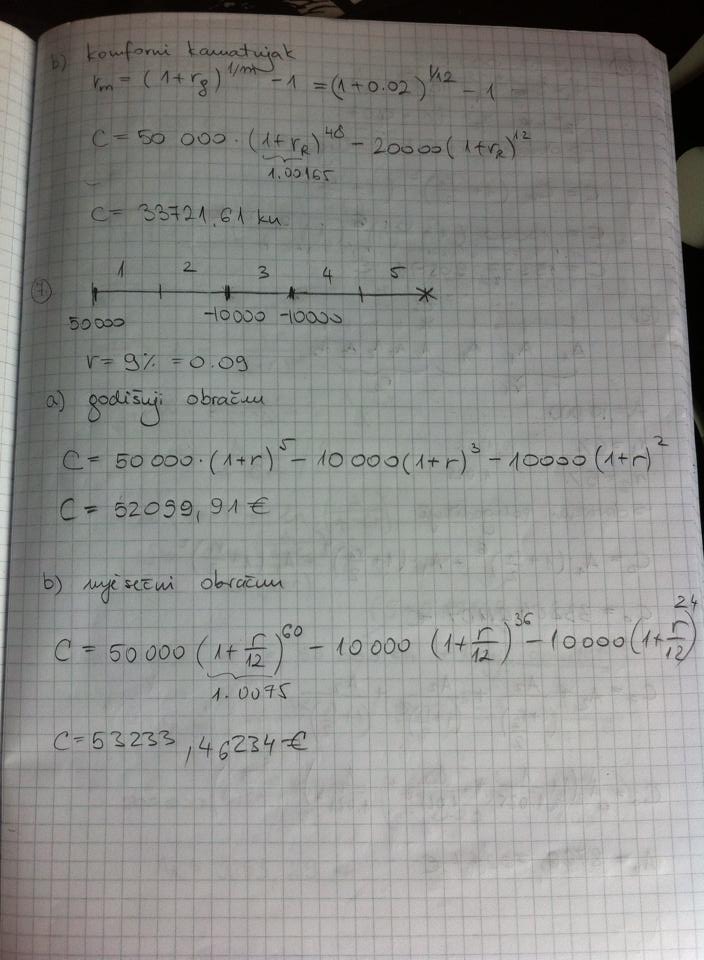 b) komforni kamatnjak
r_m = (1+r_g)^1/m - 1 = (1+0.02)^1/12 - 1
C = 50 000 · (1+r_k)^48 - 20000 (1+r_k)^12
1.00165
C = 33721,61 kn
7 1 2 3 4 5
50000 -10000 -10000
r = 9% = 0.09
a) godišnji obračun
C = 50 000 · (1+r)^5 - 10 000 (1+r)^3 - 10000 (1+r)^2
C = 52099,91 €
b) mjesečni obračun
C = 50 000 (1+r/12)^60 - 10 000 (1+r/12)^36 - 10 000 (1+r/12)^24
1.0075
C = 53233,46234 €